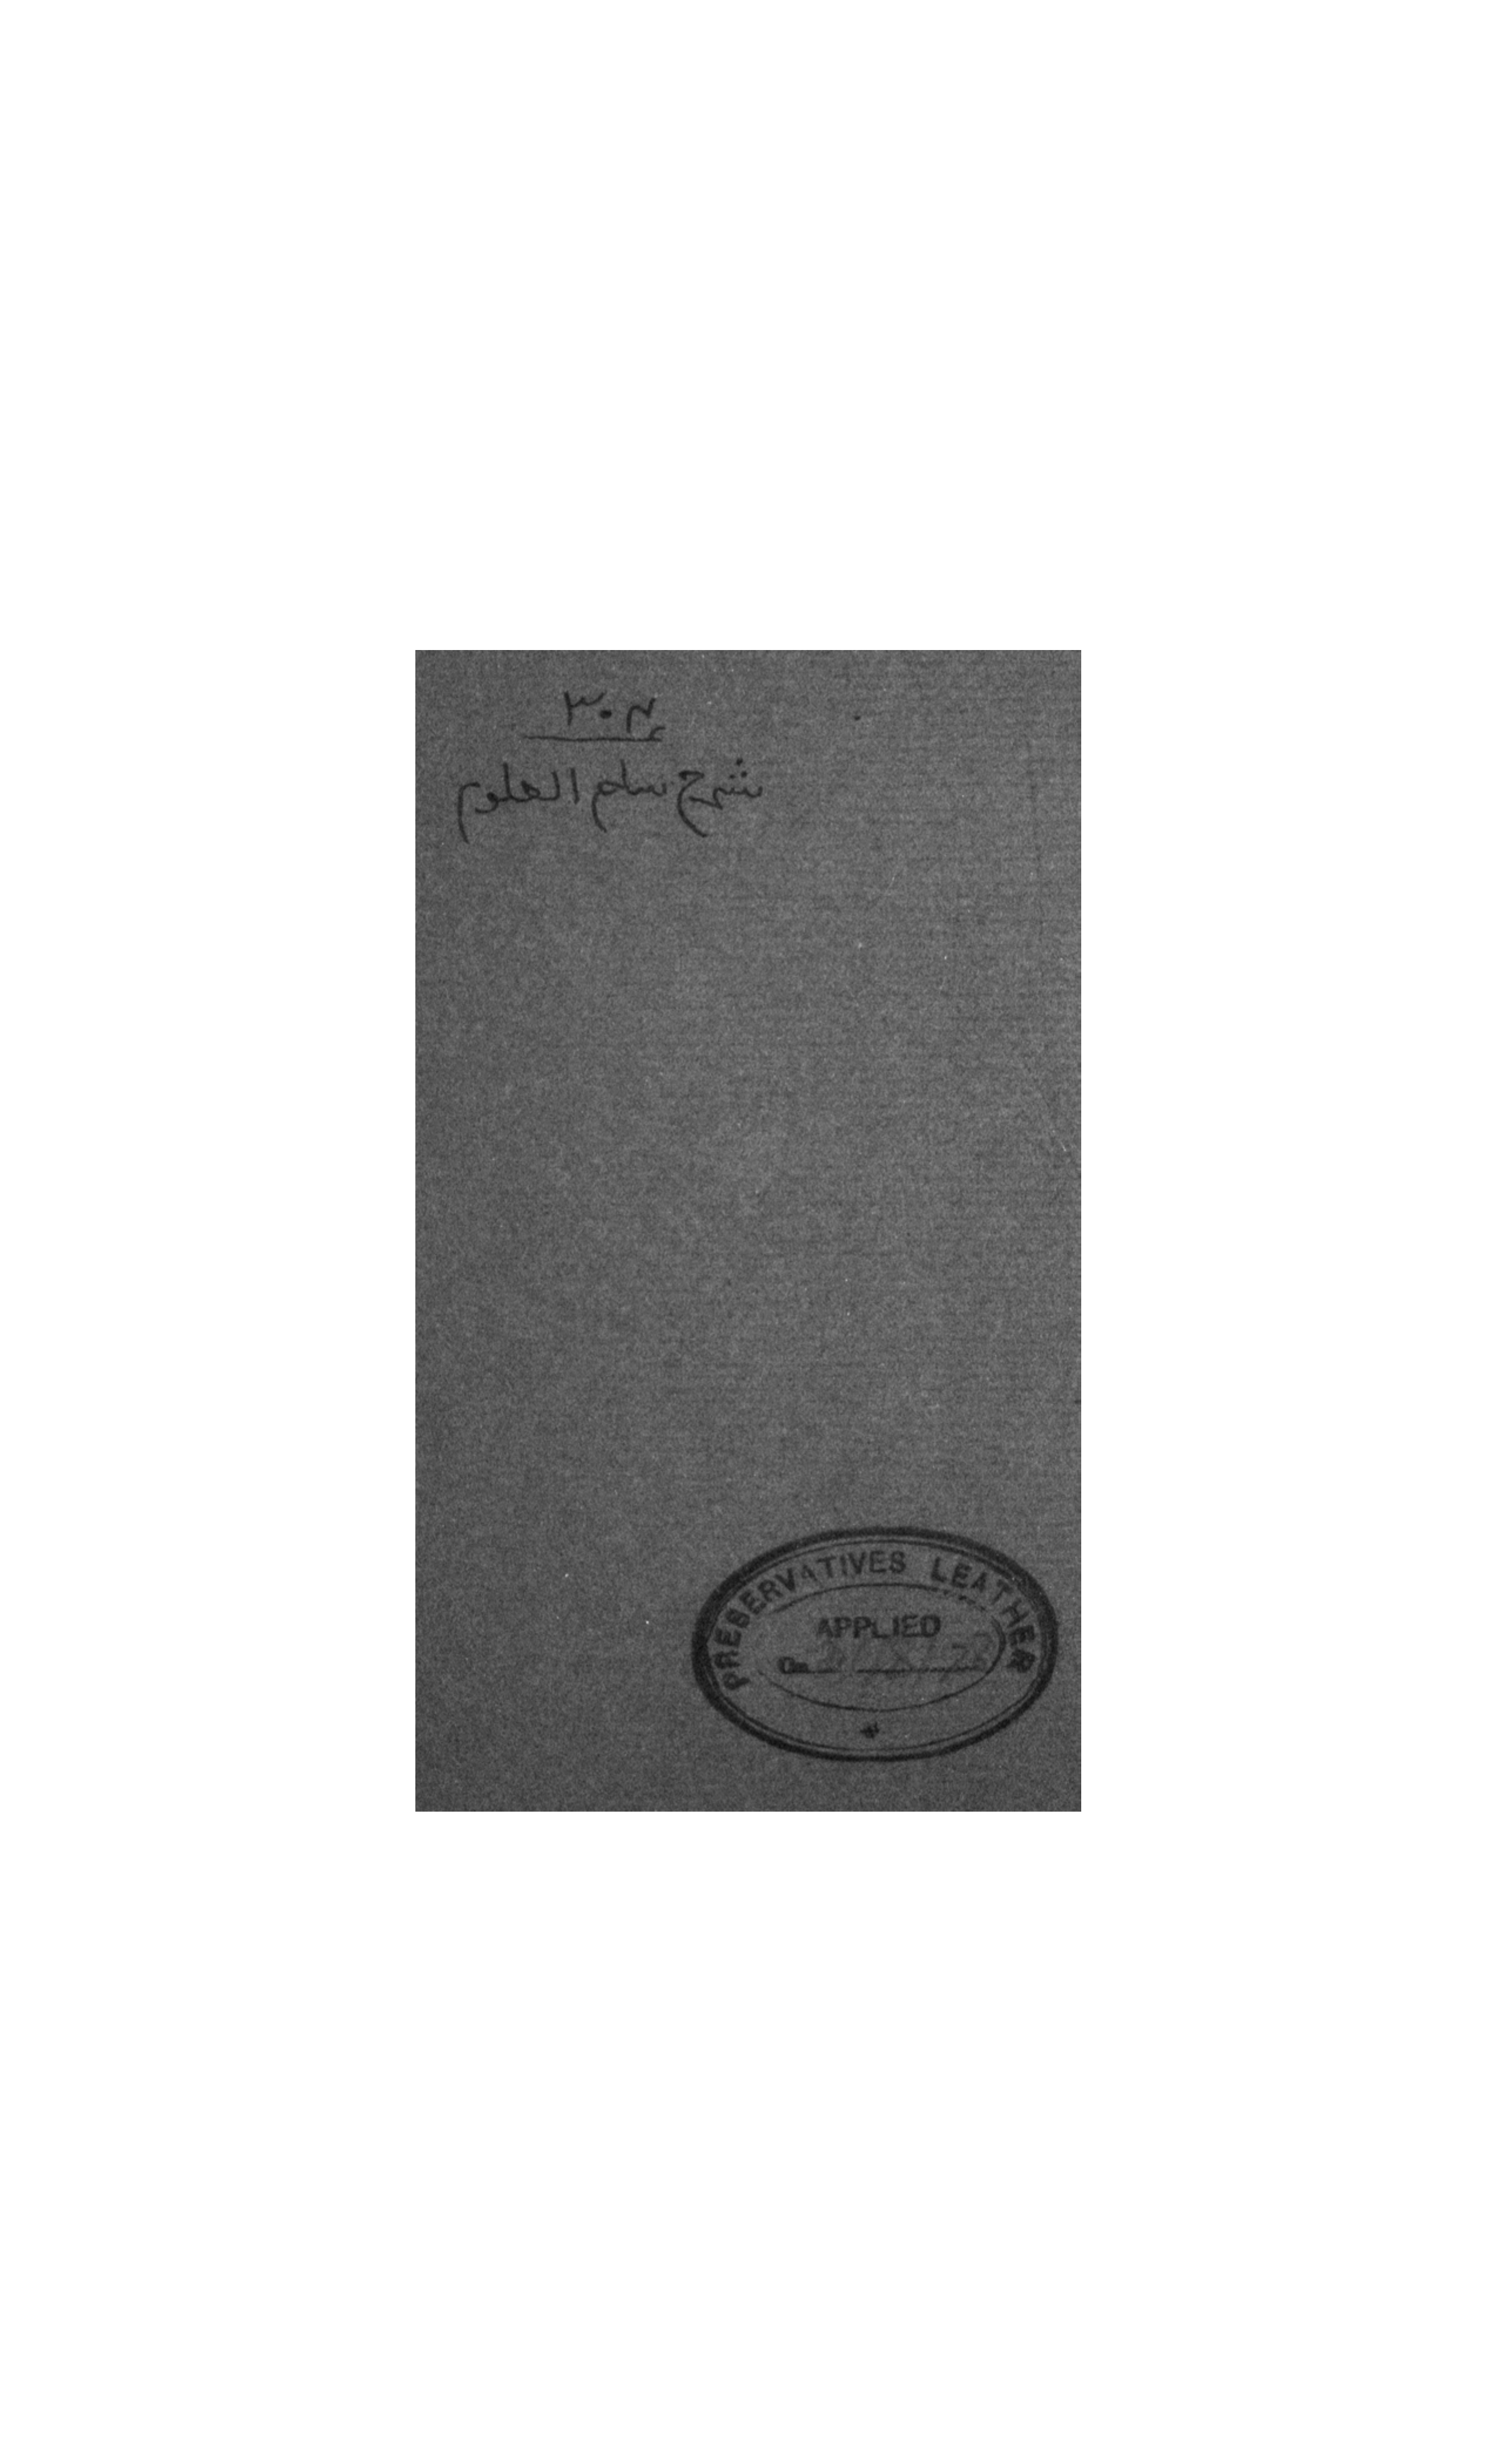 شرح سلم العلوم
PRESERVATIVES LEATHER
APPLIED
On